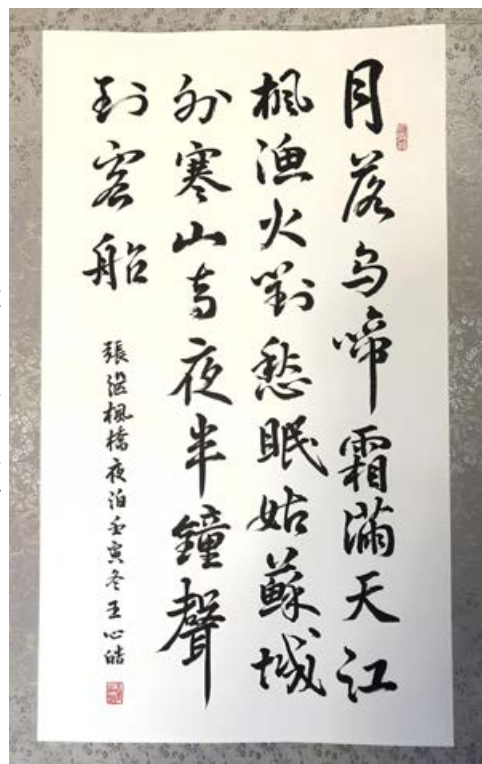 月落乌啼霜滿天江
枫渔火對愁眠姑蘇城
外寒山寺夜半鐘聲
到客船
張继枫橋夜泊壬寅冬王心皓